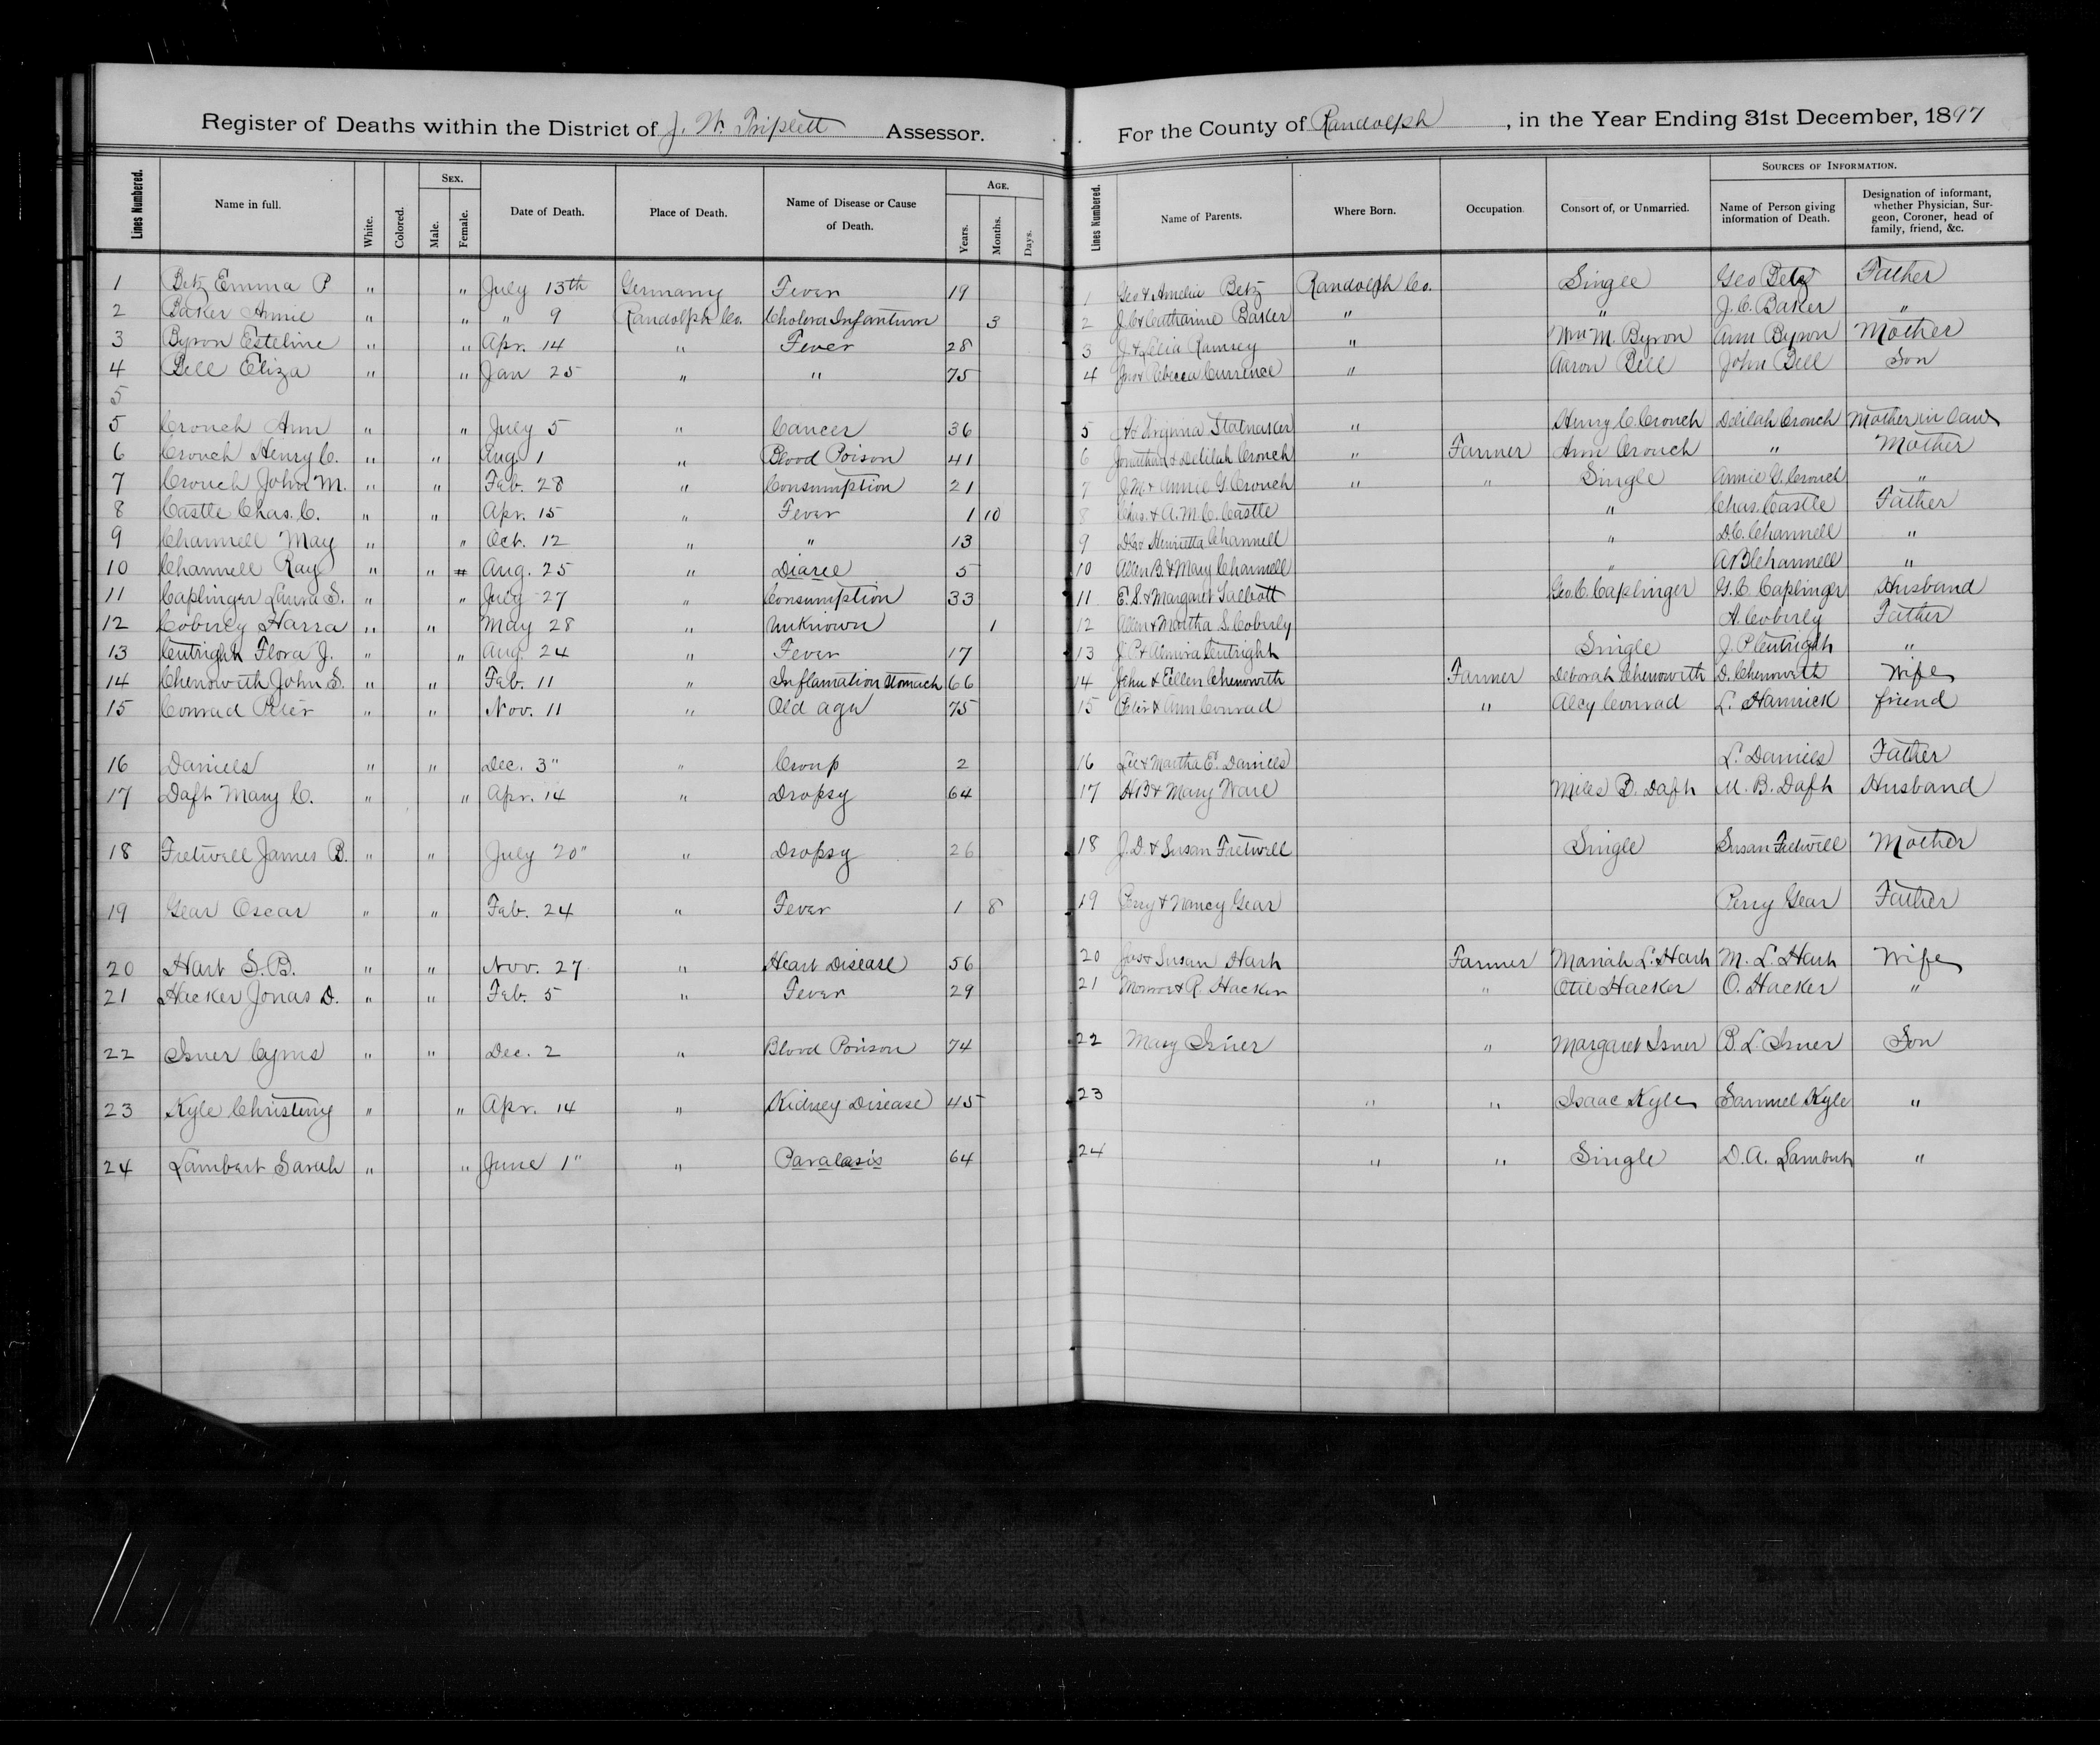 Register of Deaths within the District of J. W. Triplett Assessor.
Lines Numbered. Name in full. White. Colored. Sex. Male. Female. Date of Death. Place of Death. Name of Disease or Cause of Death. Age. Years. Months. Days.
1 Betz Emma P " " July 13th Germany Fever 19
2 Baker Annie " " " 9 Randolph Co. Cholera Infantum 3
3 Byron Esteline " " Apr. 14 " Fever 28
4 Bell Eliza " " Jan 25 " " 75
5
5 Crouch Ann " " July 5 " Cancer 36
6 Crouch Henry C. " " Aug. 1 " Blood Poison 41
7 Crouch John M. " " Feb. 28 " Consumption 21
8 Castle Chas. C. " " Apr. 15 " Fever 1 10
9 Channell May " " Oct. 12 " " 13
10 Channell Ray " " " Aug. 25 " Diaree 5
11 Caplinger Laura S. " " July 27 " Consumption 33
12 Coberly Harra " " May 28 " Unknown 1
13 Cutright Flora J. " " Aug. 24 " Fever 17
14 Chenowith John S. " " Feb. 11 " Inflamation Stomach 66
15 Conrad Peter " " Nov. 11 " Old age 75
16 Daniels " " Dec. 3" " Croup 2
17 Daft Mary C. " " Apr. 14 " Dropsy 64
18 Fretwell James B. " " July 20" " Dropsy 26
19 Gear Oscar " " Feb. 24 " Fever 1 8
20 Hart S. B. " " Nov. 27 " Heart Disease 56
21 Hacker Jonas D. " " Feb. 5 " Fever 29
22 Isner Cyrus " " Dec. 2 " Blood Poison 74
23 Kyle Christeny " " Apr. 14 " Kidney Disease 45
24 Lambert Sarah " " June 1" " Paralasis 64
For the County of Randolph, in the Year Ending 31st December, 1897
Lines Numbered. Name of Parents. Where Born. Occupation. Consort of, or Unmarried. Sources of Information. Name of Person giving information of Death. Designation of informant, whether Physician, Surgeon, Coroner, head of family, friend, &c.
1 Geo & Amelia Betz Randolph Co. Single Geo Betz Father
2 J. C. & Catharine Baker " " J. C. Baker "
3 J. & Celia Ramsey " Wm M. Byron Ann Byron Mother
4 Jno & Rebecca Currence " Aaron Bell John Bell Son
5 & Virginia Stalnaker " Henry C. Crouch Delilah Crouch Mother in law
6 Jonathan & Delilah Crouch " Farmer Ann Crouch " Mother
7 J. M. & Annie G. Crouch " " Single Annie G. Crouch "
8 Chas. & A. M. C. Castle " Chas. Castle Father
9 D.C. & Henrietta Channell " D.C. Channell "
10 Allen B. & Mary Channell " A B Channell "
11 E. S. & Margaret Talbott Geo. C. Caplinger G. C. Caplinger Husband
12 Allen & Martha S. Coberly A. Coberly Father
13 J. P. & Almira Cutright Single J. P. Cutright "
14 John & Eillen Chenowith Farmer Deborah Chenowith D. Chenowith Wife
15 Peter & Ann Conrad " Alcy Conrad L. Hamrick friend
16 Lee & Martha E. Daniels L. Daniels Father
17 H B & Mary Ware Miles B. Daft M. B. Daft Husband
18 J. D. & Susan Fretwell Single Susan Fretwell Mother
19 Perry & Nancy Gear Perry Gear Father
20 Jas & Susan Hart Farmer Mariah L. Hart M. L. Hart Wife
21 & R. Hacker " Otie Hacker O. Hacker "
22 Mary Isner " Margaret Isner B. L. Isner Son
23 " " Isaac Kyle Samuel Kyle "
24 " " Single D. A. Lambert "